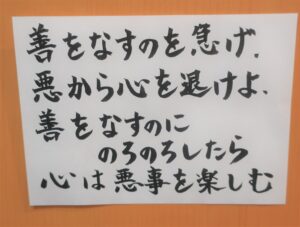 善をなすのを急げ.
悪から心を退けよ.
善をなすのに
のろのろしたら
心は悪事を楽しむ